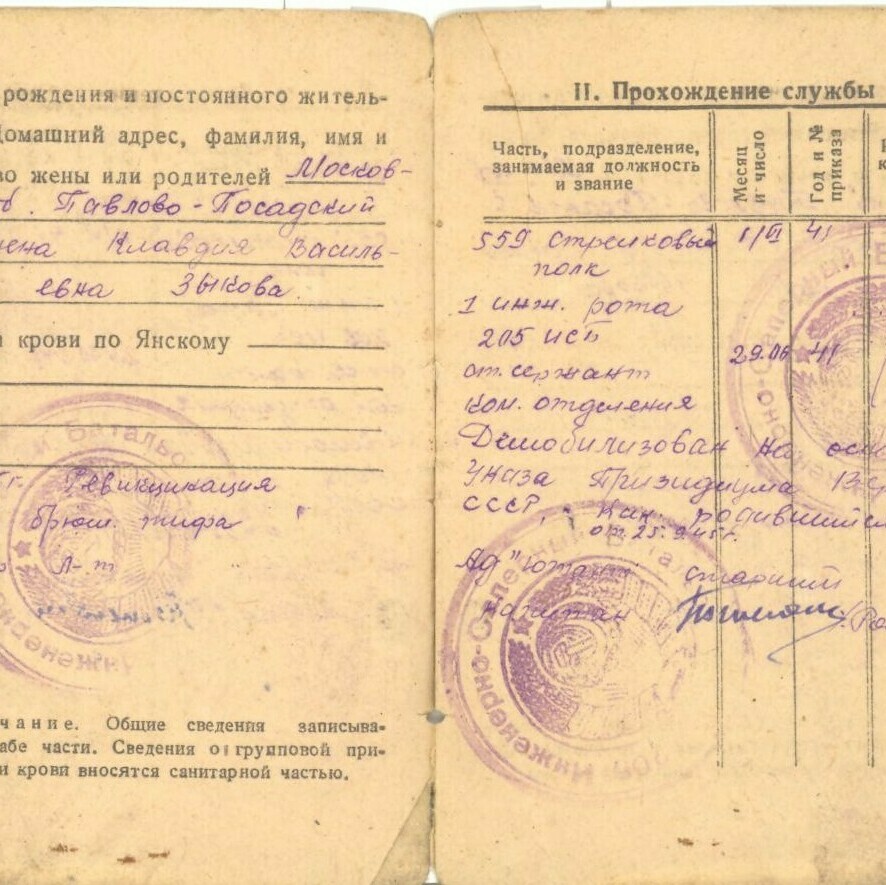 рождения и постоянного житель-
Домашний адрес, фамилия, имя и
во жены или родителей Москов-
б. Павлово-Посадский
ена Клавдия Василь-
евна Зыкова
крови по Янскому
г. Ревикцикация
брюш. тифа
Л-т
чание. Общие сведения записыва-
абе части. Сведения о групповой при-
и крови вносятся санитарной частью.
II. Прохождение службы
Часть, подразделение,
занимаемая должность
и звание
Месяц
и число
Год и №
приказа
559 стрелковый 41
полк
1 инж. рота
205 исб 29.06 41
ст. сержант
ком. отделения
Демобилизован на осно
Указа Призидиума
СССР, родившийся
от 25.9.45г.
Ад"ютант старший
капитан
Инженерно-Саперный Батальон